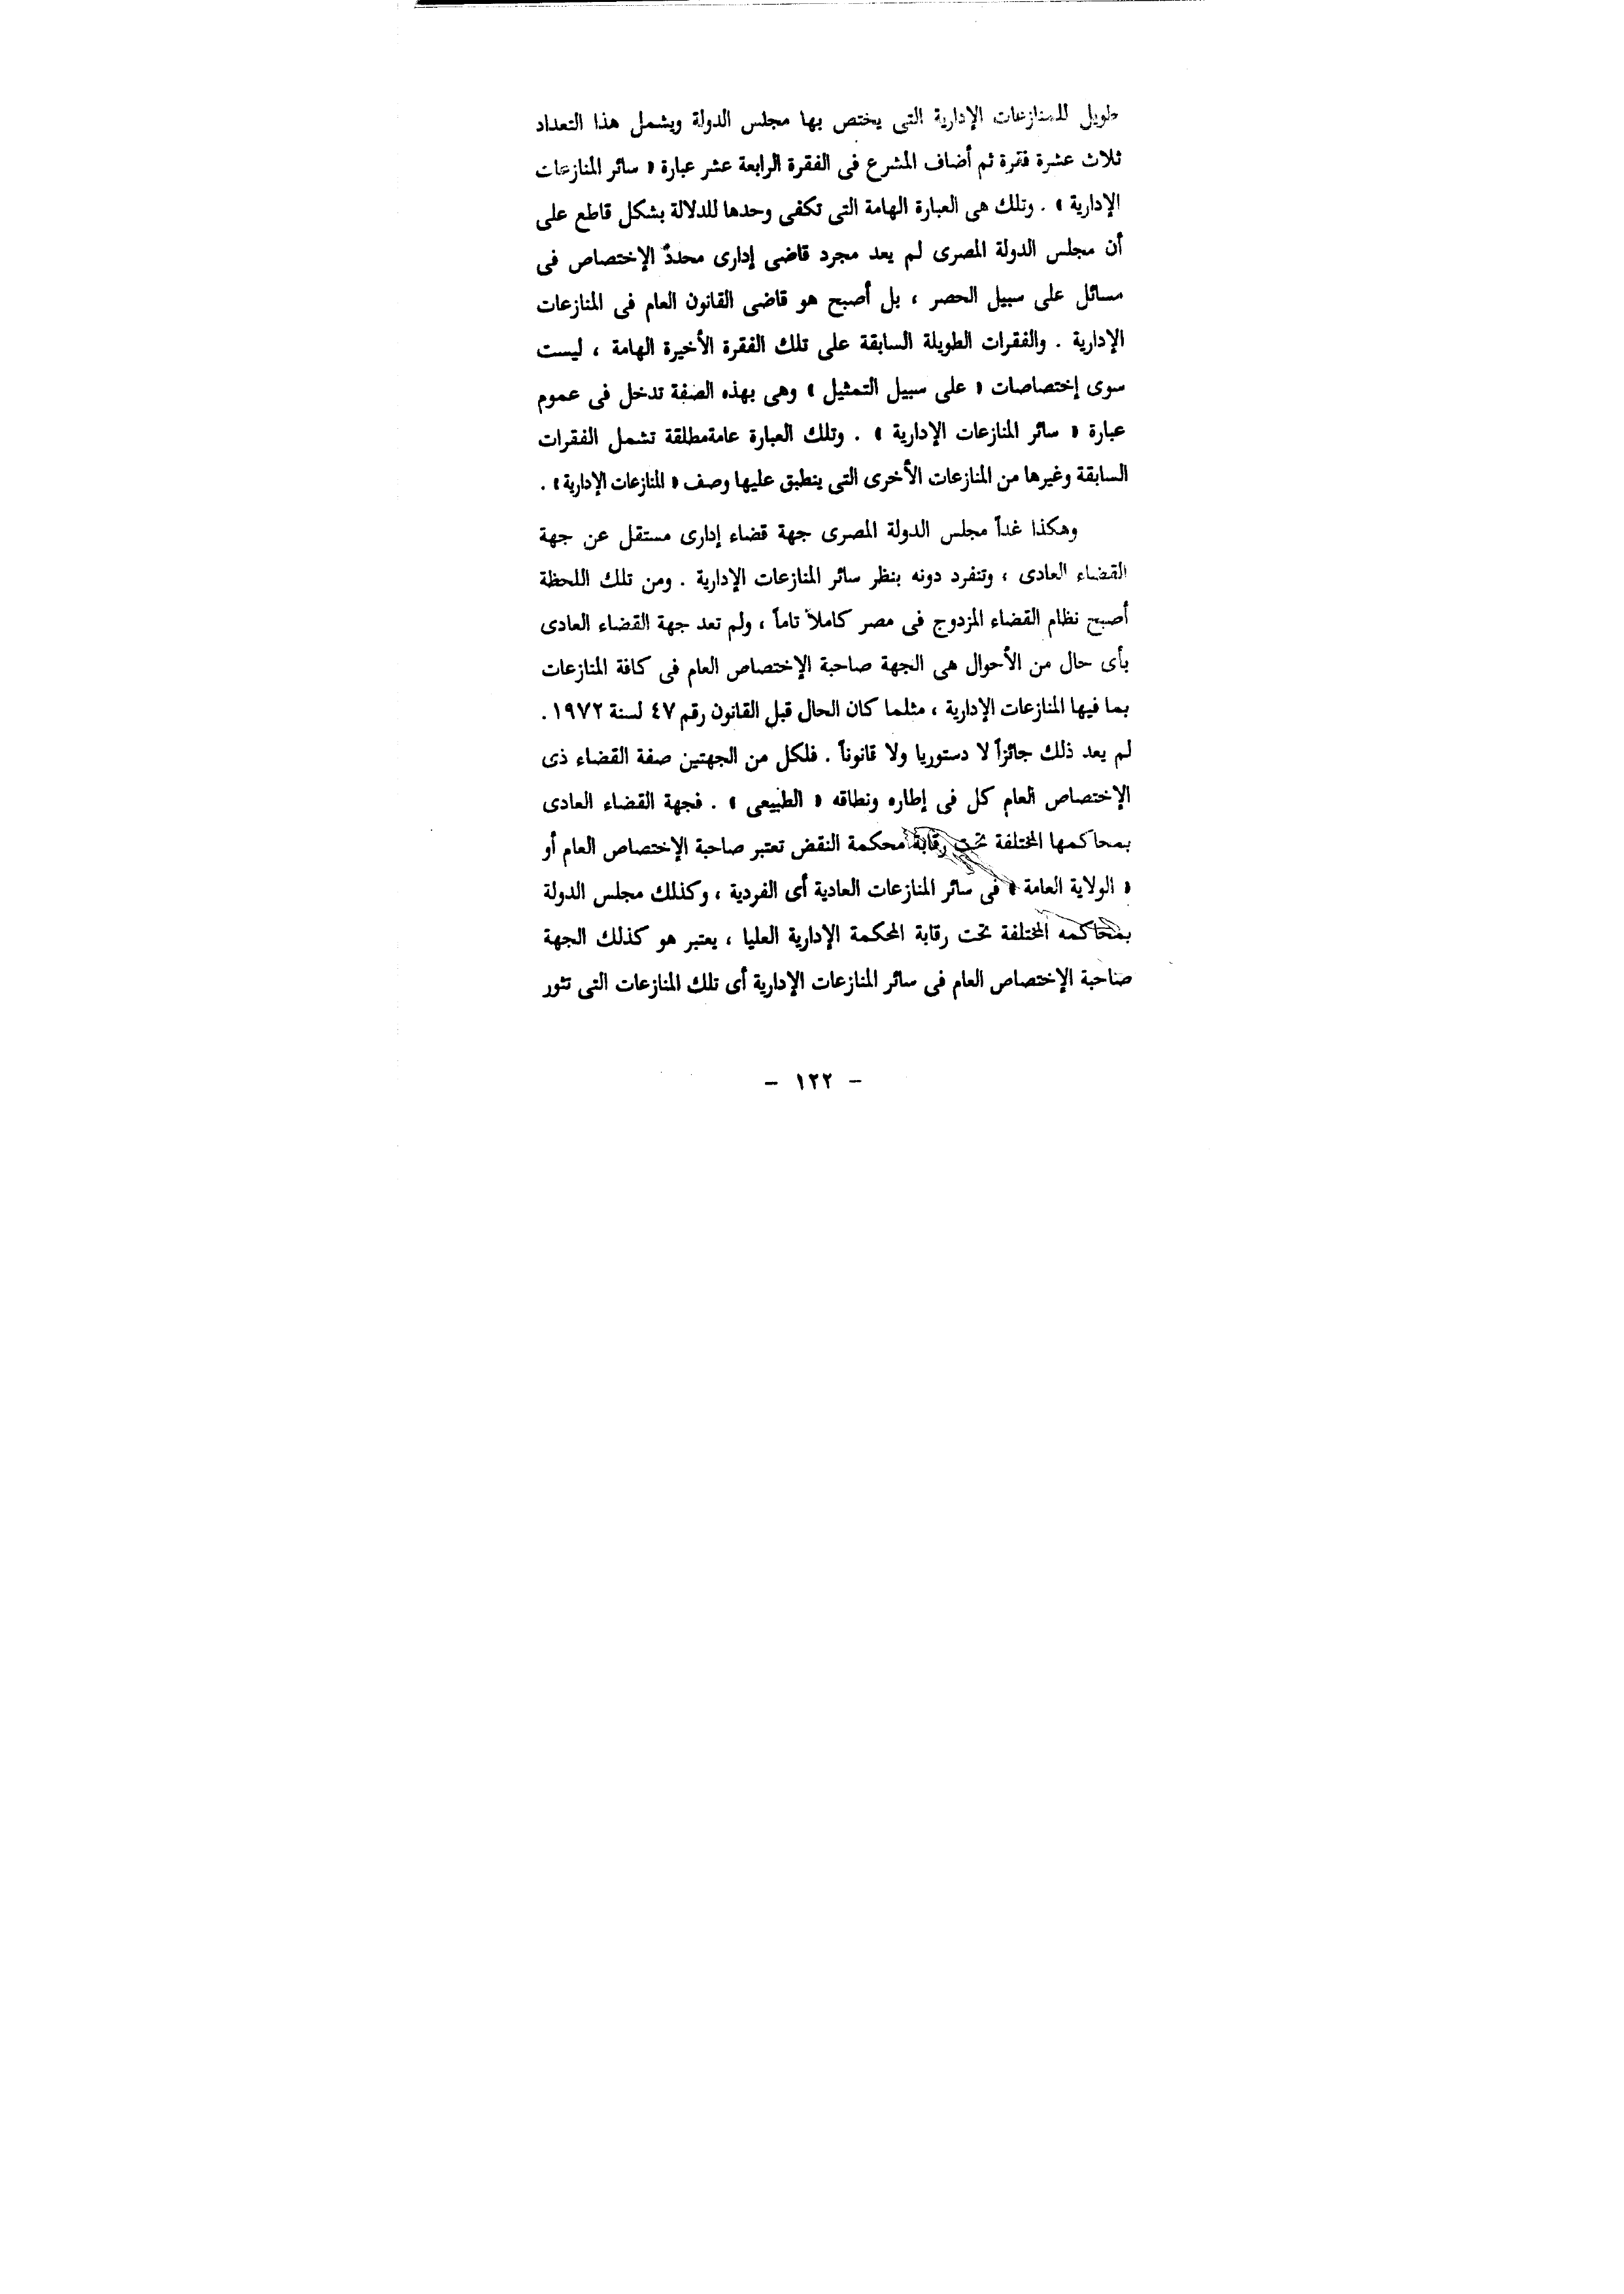 طويل للمنازعات الإدارية التى يختص بها مجلس الدولة ويشمل هذا التعداد
ثلاث عشرة فقرة ثم أضاف المشرع فى الفقرة الرابعة عشر عبارة « سائر المنازعات
الإدارية » . وتلك هى العبارة الهامة التى تكفى وحدها للدلالة بشكل قاطع على
أن مجلس الدولة المصرى لم يعد مجرد قاضى إدارى محدد الإختصاص فى
مسائل على سبيل الحصر ، بل أصبح هو قاضى القانون العام فى المنازعات
الإدارية . والفقرات الطويلة السابقة على تلك الفقرة الأخيرة الهامة ، ليست
سوى إختصاصات « على سبيل التمثيل » وهى بهذه الصفة تدخل فى عموم
عبارة « سائر المنازعات الإدارية » . وتلك العبارة عامة مطلقة تشمل الفقرات
السابقة وغيرها من المنازعات الأخرى التى ينطبق عليها وصف « المنازعات الإدارية » .
وهكذا غداً مجلس الدولة المصرى جهة قضاء إدارى مستقل عن جهة
القضاء العادى ، وتنفرد دونه بنظر سائر المنازعات الإدارية . ومن تلك اللحظة
أصبح نظام القضاء المزدوج فى مصر كاملاً تاماً ، ولم تعد جهة القضاء العادى
بأى حال من الأحوال هى الجهة صاحبة الإختصاص العام فى كافة المنازعات
بما فيها المنازعات الإدارية ، مثلما كان الحال قبل القانون رقم ٤٧ لسنة ١٩٧٢ .
لم يعد ذلك جائزاً لا دستوريا ولا قانوناً . فلكل من الجهتين صفة القضاء ذى
الإختصاص العام كل فى إطاره ونطاقه « الطبيعى » . فجهة القضاء العادى
بمحاكمها المختلفة تحت رقابة محكمة النقض تعتبر صاحبة الإختصاص العام أو
« الولاية العامة » فى سائر المنازعات العادية أى الفردية ، وكذلك مجلس الدولة
بمحاكمه المختلفة تحت رقابة المحكمة الإدارية العليا ، يعتبر هو كذلك الجهة
صاحبة الإختصاص العام فى سائر المنازعات الإدارية أى تلك المنازعات التى تثور
– ١٢٢ –